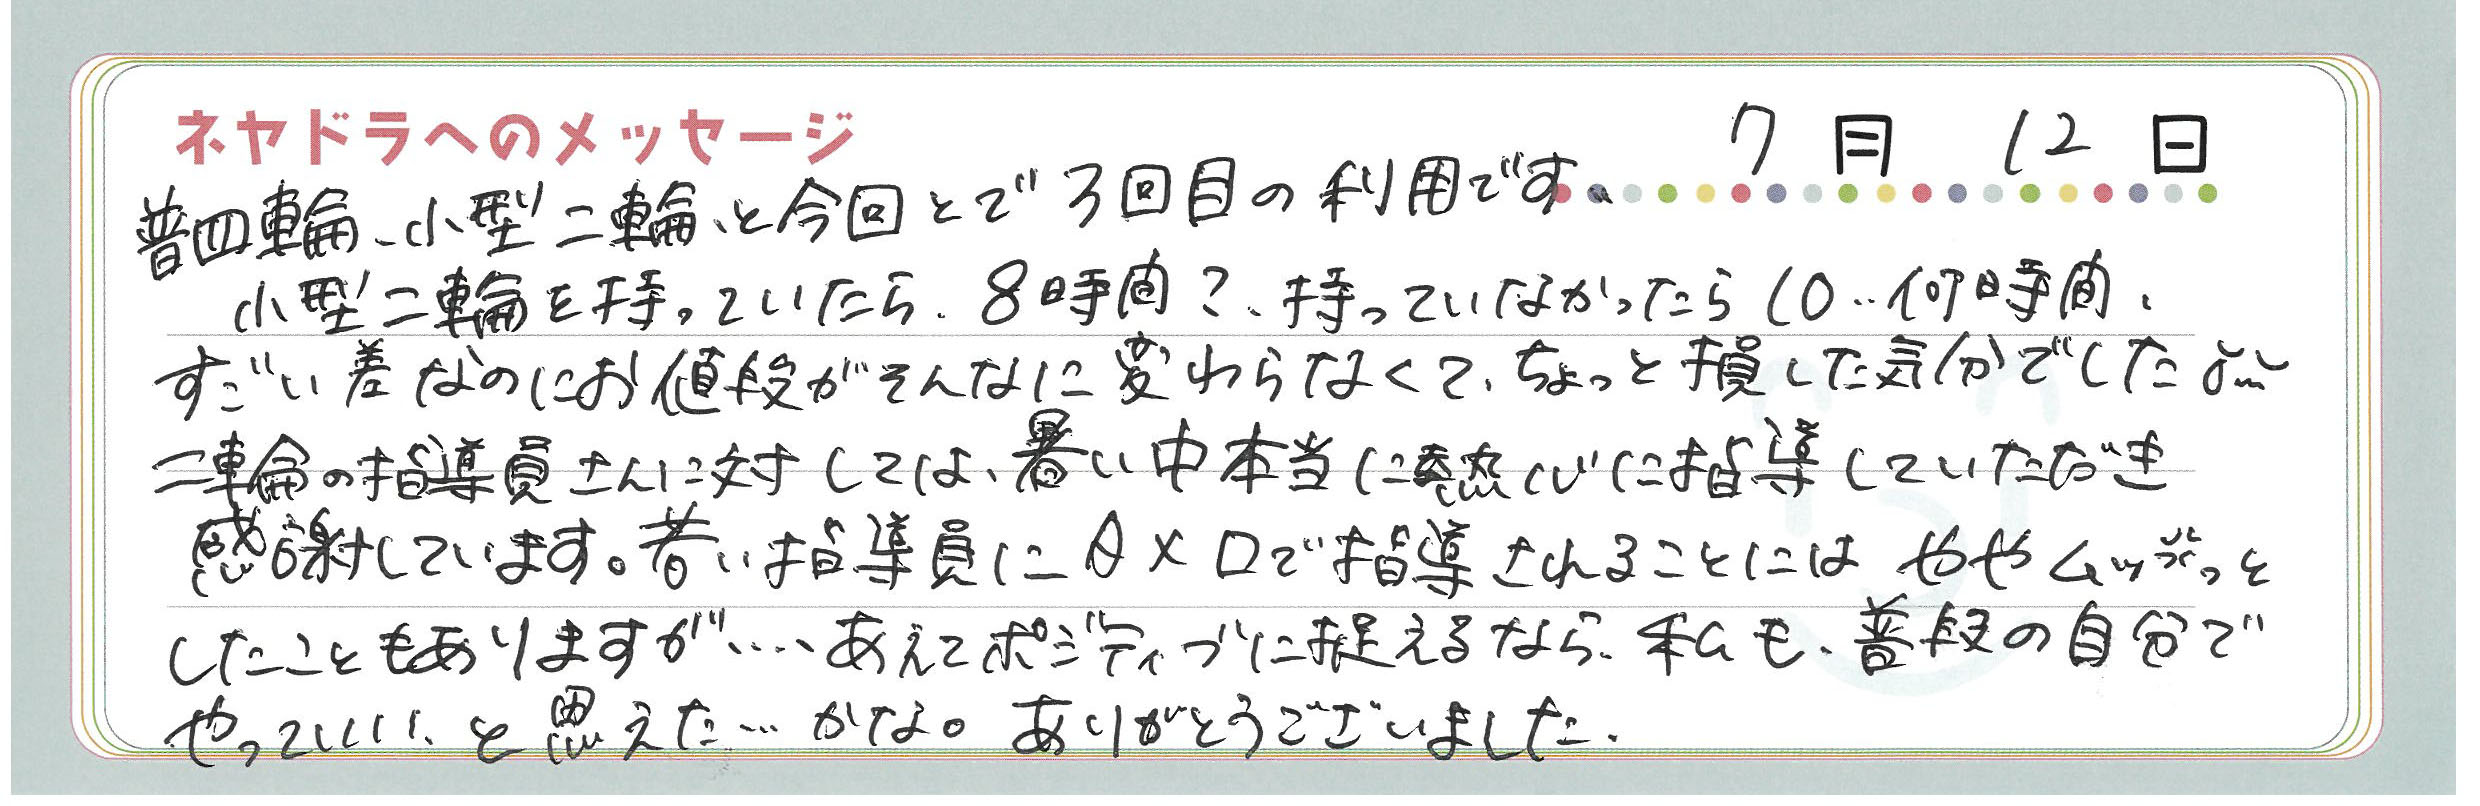 ネヤドラへのメッセージ
7月 12日
普四輪、小型二輪、と今回とで3回目の利用です、
小型二輪を持っていたら、8時間?、持っていなかったら10..何時間、
すごい差なのにお値段がそんなに変わらなくて、ちょっと損した気分でした
二輪の指導員さんに対しては、暑い中本当に熱心に指導していただき
感謝しています。若い指導員にタメ口で指導されることにはややムッっと
したこともありますが....あえてポジティブに捉えるなら、私も、普段の自分で
やっていい、と思えた...かな。ありがとうございました。